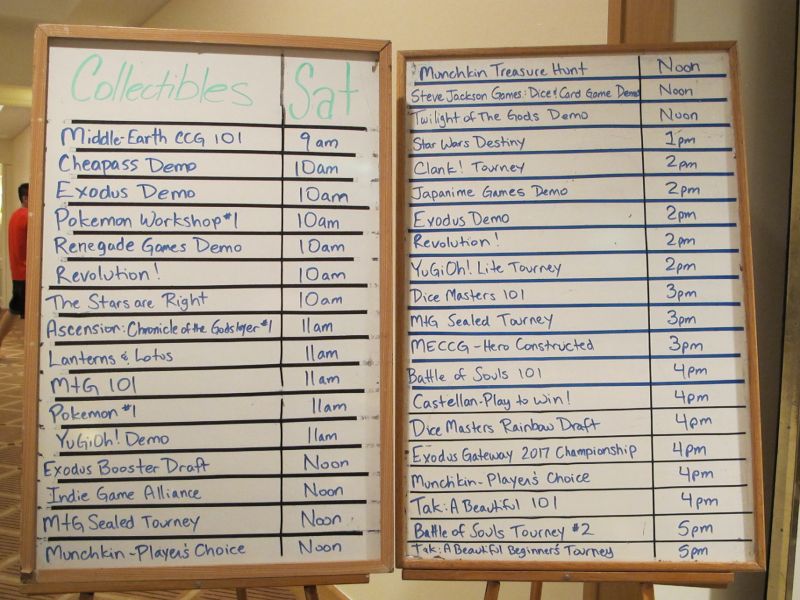 Collectibles Sat
Middle-Earth CCG 101 9am
Cheapass Demo 10am
Exodus Demo 10am
Pokemon Workshop #1 10am
Renegade Games Demo 10am
Revolution! 10am
The Stars are Right 10am
Ascension: Chronicle of the Godslayer #1 11am
Lanterns & Lotus 11am
MtG 101 11am
Pokemon #1 11am
YuGiOh! Demo 11am
Exodus Booster Draft Noon
Indie Game Alliance Noon
MtG Sealed Tourney Noon
Munchkin - Player's Choice Noon
Munchkin Treasure Hunt Noon
Steve Jackson Games: Dice & Card Game Demo Noon
Twilight of The Gods Demo Noon
Star Wars Destiny 1pm
Clank! Tourney 2pm
Japanime Games Demo 2pm
Exodus Demo 2pm
Revolution! 2pm
YuGiOh! Lite Tourney 2pm
Dice Masters 101 3pm
MtG Sealed Tourney 3pm
MECCG - Hero Constructed 3pm
Battle of Souls 101 4pm
Castellan - Play to Win! 4pm
Dice Masters Rainbow Draft 4pm
Exodus Gateway 2017 Championship 4pm
Munchkin - Player's Choice 4pm
Tak: A Beautiful 101 4pm
Battle of Souls Tourney #2 5pm
Tak: A Beautiful Beginner's Tourney 5pm